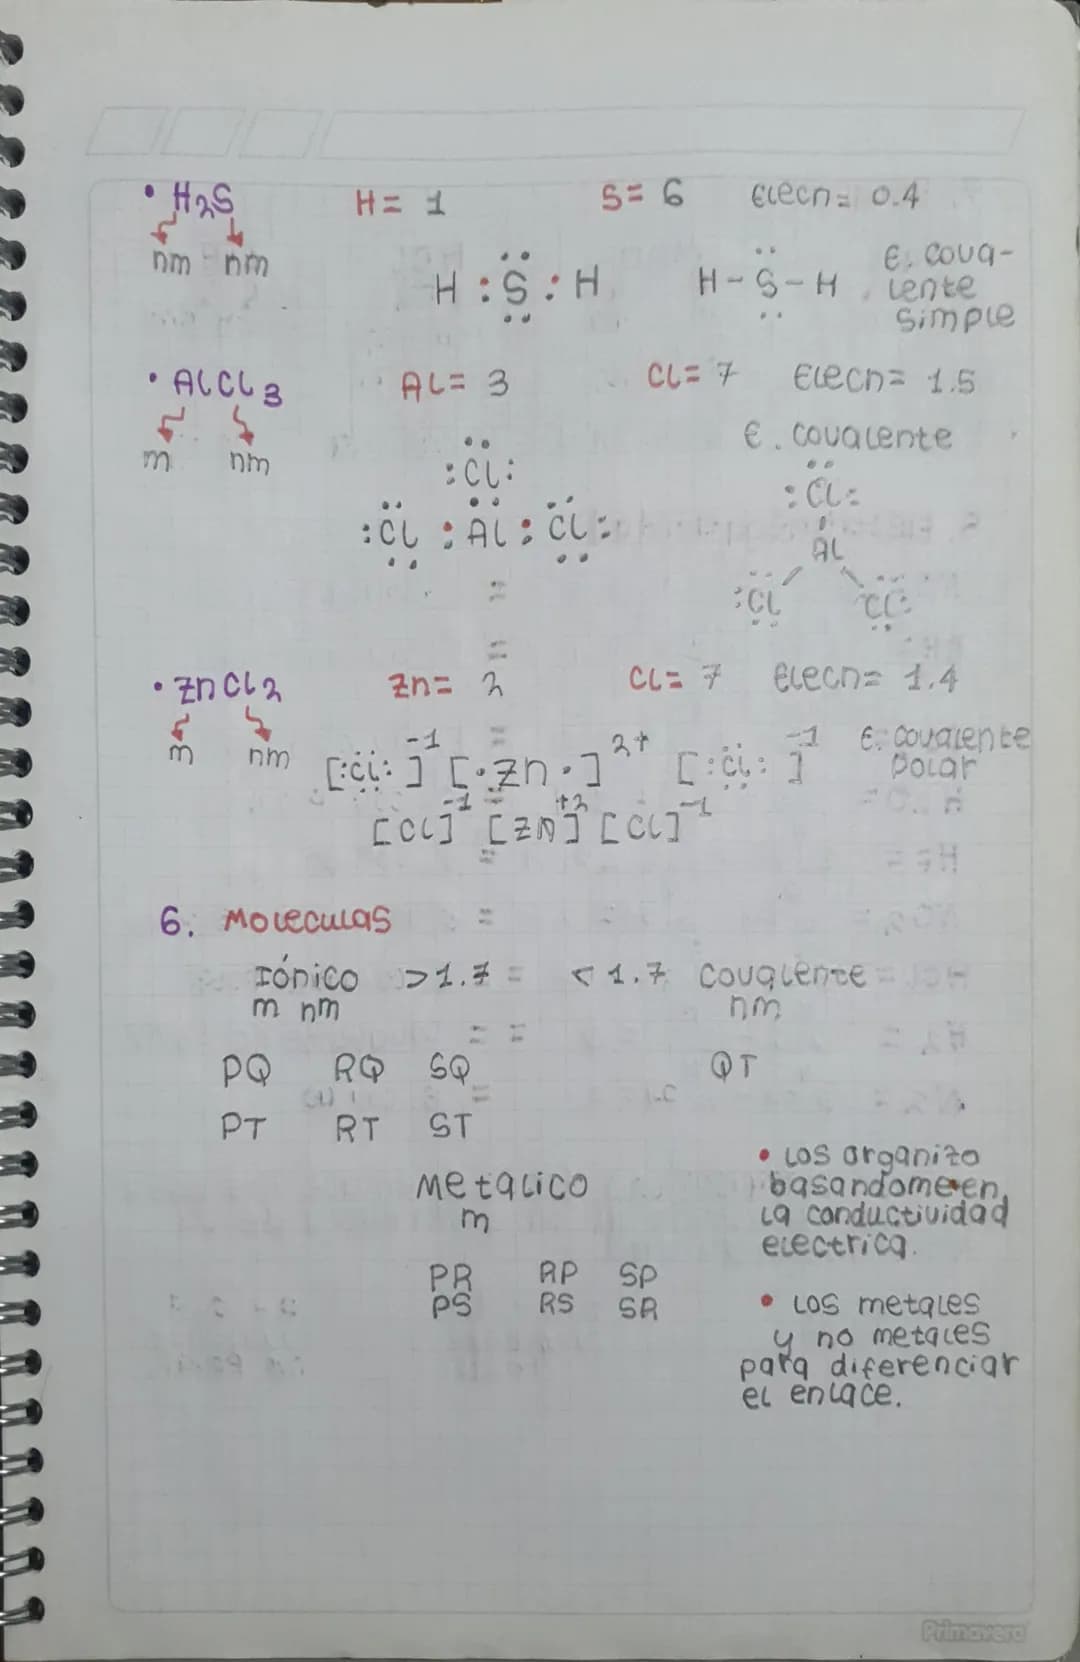 • H2S H= 1 S= 6 Elecn= 0.4
nm nm
H : S : H H - S - H E. cova-
lente
simple
• AlCl3 Al= 3 Cl= 7 Elecn= 1.5
m nm
E. covalente
:Cl: :Cl:
:Cl : Al : Cl: Al
:Cl Cl:
• ZnCl2 Zn= 2 Cl= 7 Elecn= 1.4
m nm
[:Cl:]-1 [·Zn·]2+ [:Cl:]-1 E. covalente
polar
[Cl]-1 [Zn]+2 [Cl]-1
6. Moleculas
Iónico >1.7 = < 1.7 covalente
m nm nm
PQ RQ SQ QT
PT RT ST
Metalico
m
PR RP SP
PS RS SR
• Los organizo
basandome en
la conductividad
electrica.
• Los metales
y no metales
para diferenciar
el enlace.
Primavera